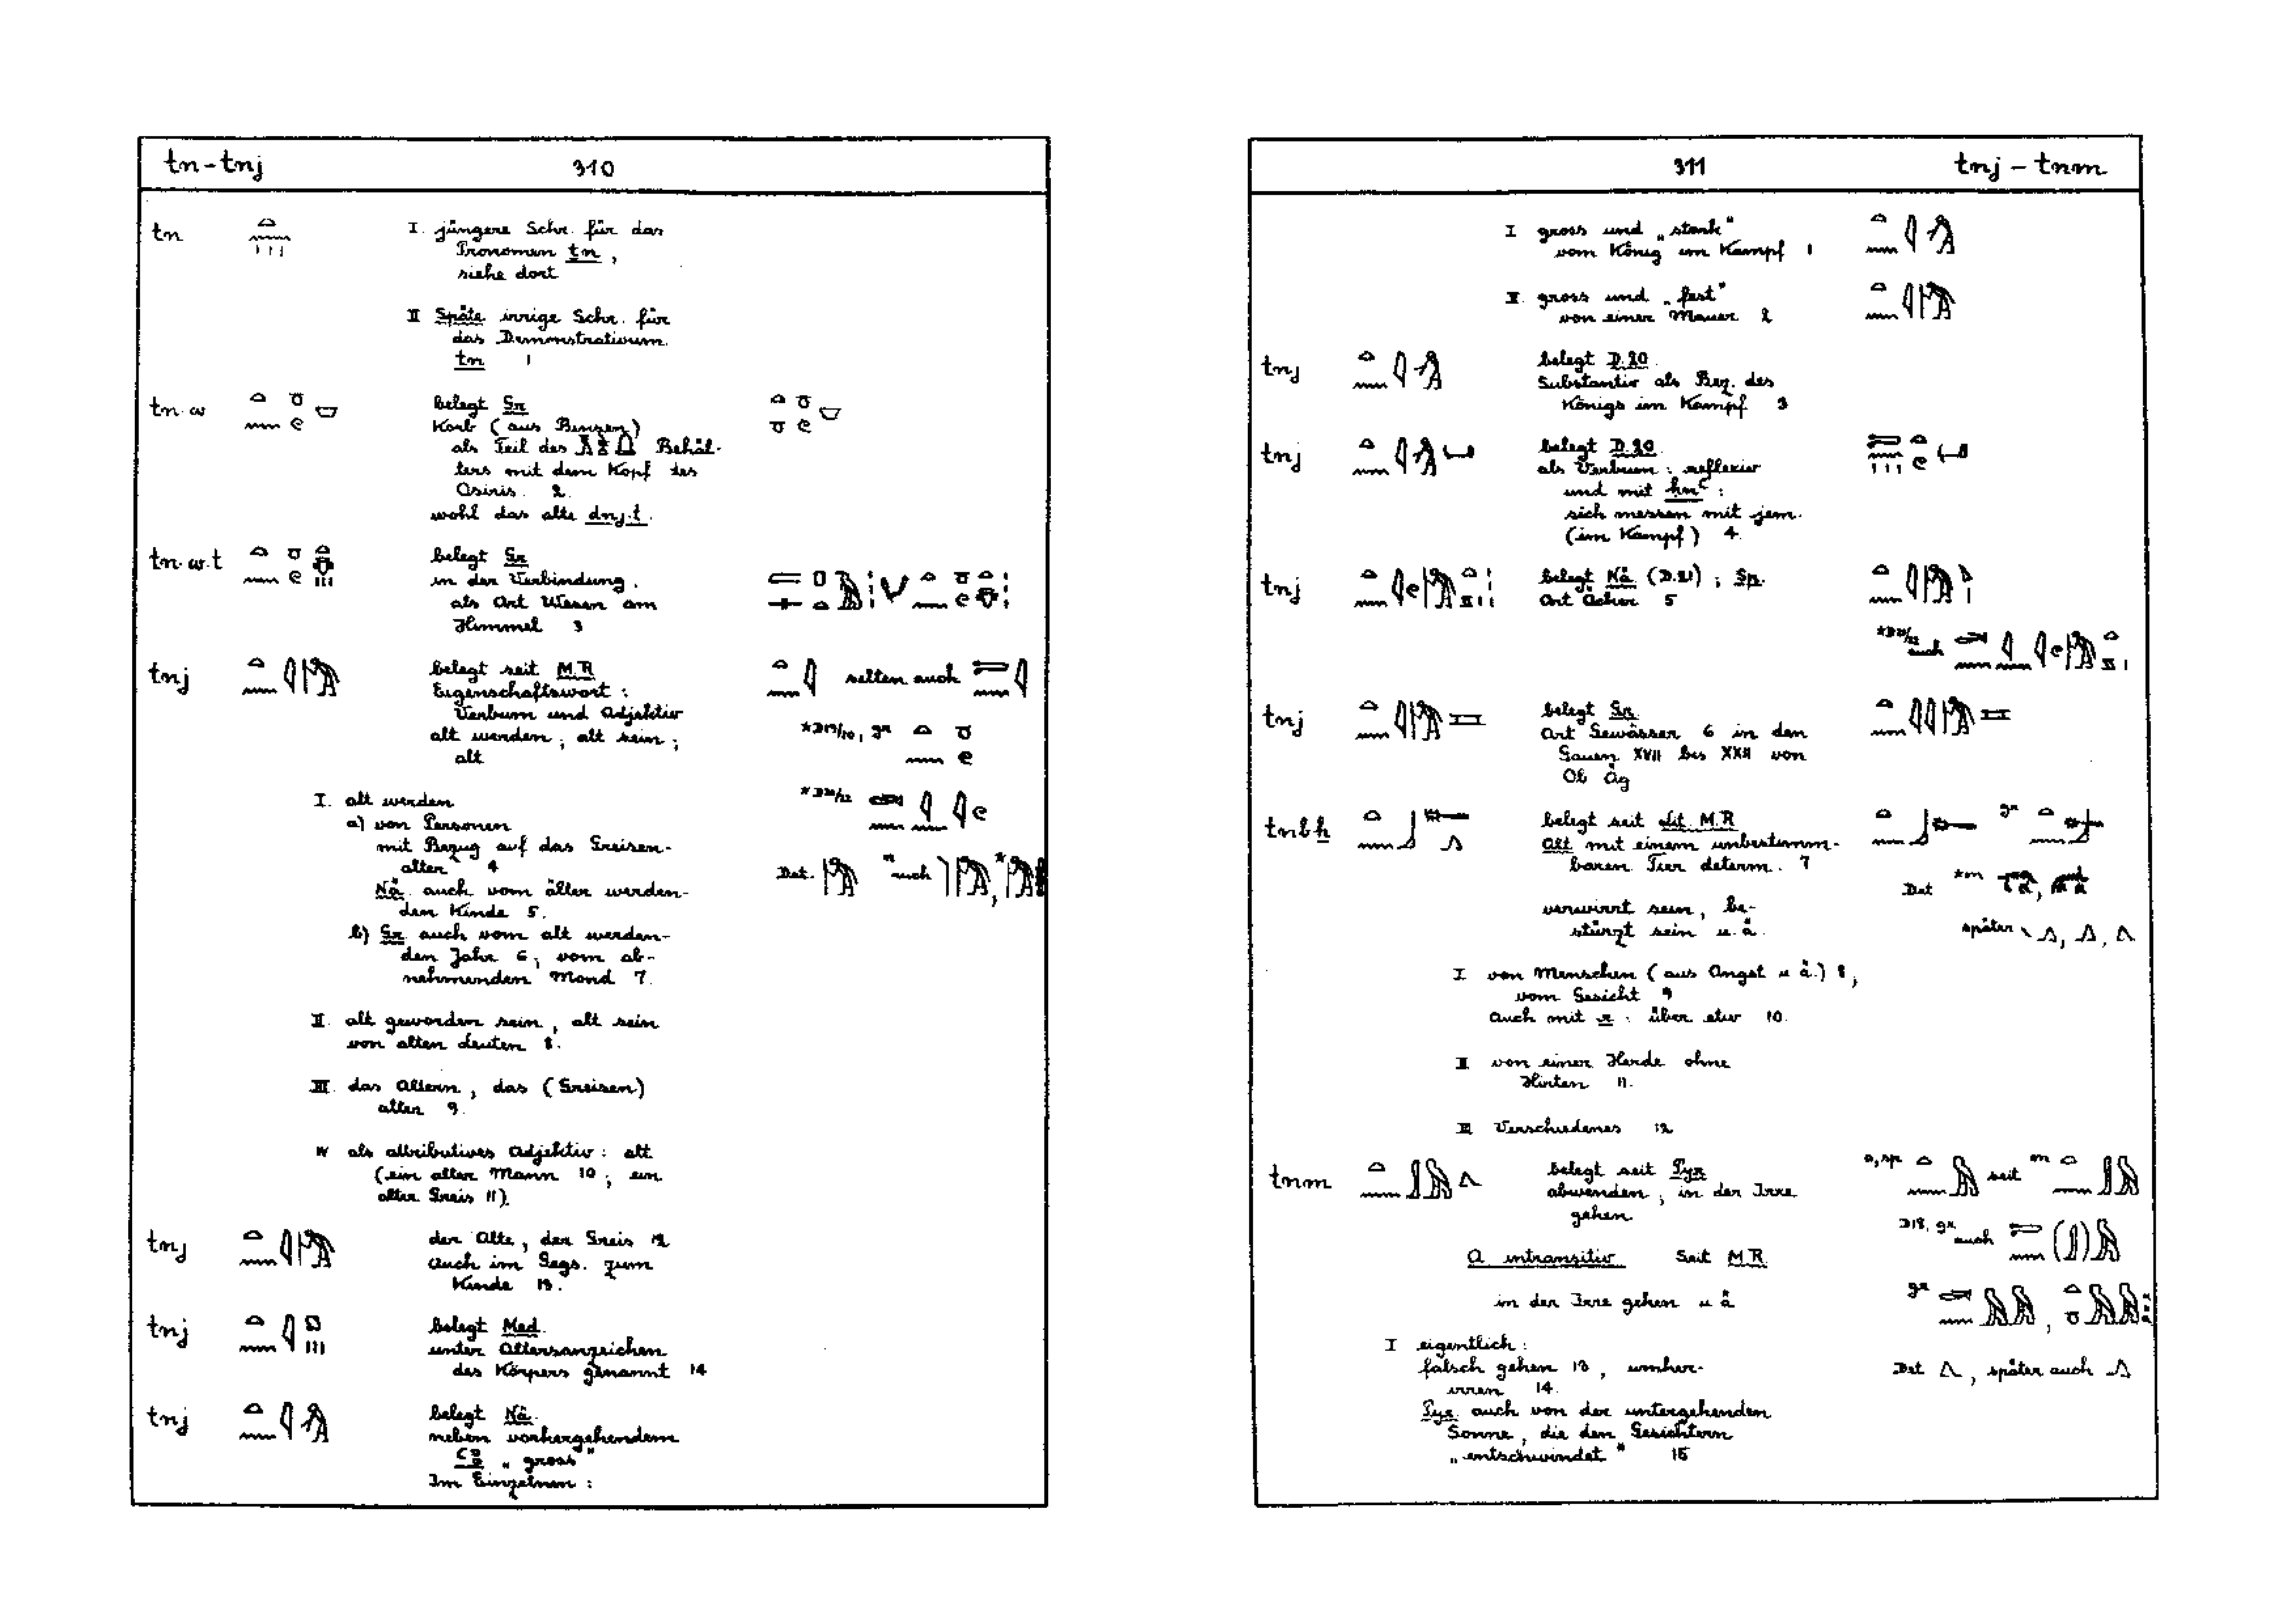 tn - tnj 310
tn I. jüngere Schr. für das
Pronomen ṯn,
siehe dort
II Späte irrige Schr. für
das Demonstrativum
tn 1
tn.w belegt Gr
Korb (aus Binsen)
als Teil des Behäl-
ters mit dem Kopf des
Osiris. 2.
wohl das alte dnj.t.
tn.w.t belegt Gr
in der Verbindung.
als Art Wesen am
Himmel 3
tnj belegt seit M.R. selten auch
Eigenschaftswort:
Verbum und Adjektiv
alt werden; alt sein; *D19/20, gr
alt
I. alt werden *D21/22
a) von Personen
mit Bezug auf das Greisen-
alter 4 Det. m auch
Nä auch vom älter werden-
den Kinde 5.
b) Gr auch vom alt werden-
den Jahr 6; vom ab-
nehmenden Mond 7.
II. alt geworden sein, alt sein
von alten Leuten 8.
III. das Altern, das (Greisen)
alter 9.
IV als attributives Adjektiv: alt
(ein alter Mann 10; ein
alter Greis 11).
tnj der Alte, der Greis 12
auch im Gegs. zum
Kinde 13.
tnj belegt Med.
unter Altersanzeichen
des Körpers genannt 14
tnj belegt Nä.
neben vorhergehendem
ꜥꜣ „gross"
Im Einzelnen:
311 tnj - tnm
I gross und „stark"
vom König im Kampf 1
II. gross und „fest"
von einer Mauer 2
tnj belegt D.20.
Substantiv als Bez. des
Königs im Kampf 3
tnj belegt D.20.
als Verbum: reflexiv
und mit ḥnꜥ:
sich messen mit jem.
(im Kampf) 4.
tnj belegt Nä (D.21); Sp.
Art Äcker 5
*D21/22 auch
tnj belegt Gr.
Art Gewässer 6 in den
Gauen XVII bis XXII von
Ob Äg
tnbẖ belegt seit Lit. M.R. gr
Alt mit einem unbestimm-
baren Tier determ. 7
Det *m
verwirrt sein, be-
stürzt sein u.ä. später
I von Menschen (aus Angst u ä.) 8,
vom Gesicht 9
auch mit r: über etw 10.
II von einer Herde ohne
Hirten 11.
III Verschiedenes 12
tnm belegt seit Pyr a, sp seit m
abwenden; in der Irre
gehen D18, gr auch
A intransitiv Seit M.R.
in der Irre gehen u ä gr
I eigentlich:
falsch gehen 13, umher- Det , später auch
irren 14.
Pyr auch von der untergehenden
Sonne, die den Gesichtern
„entschwindet" 15